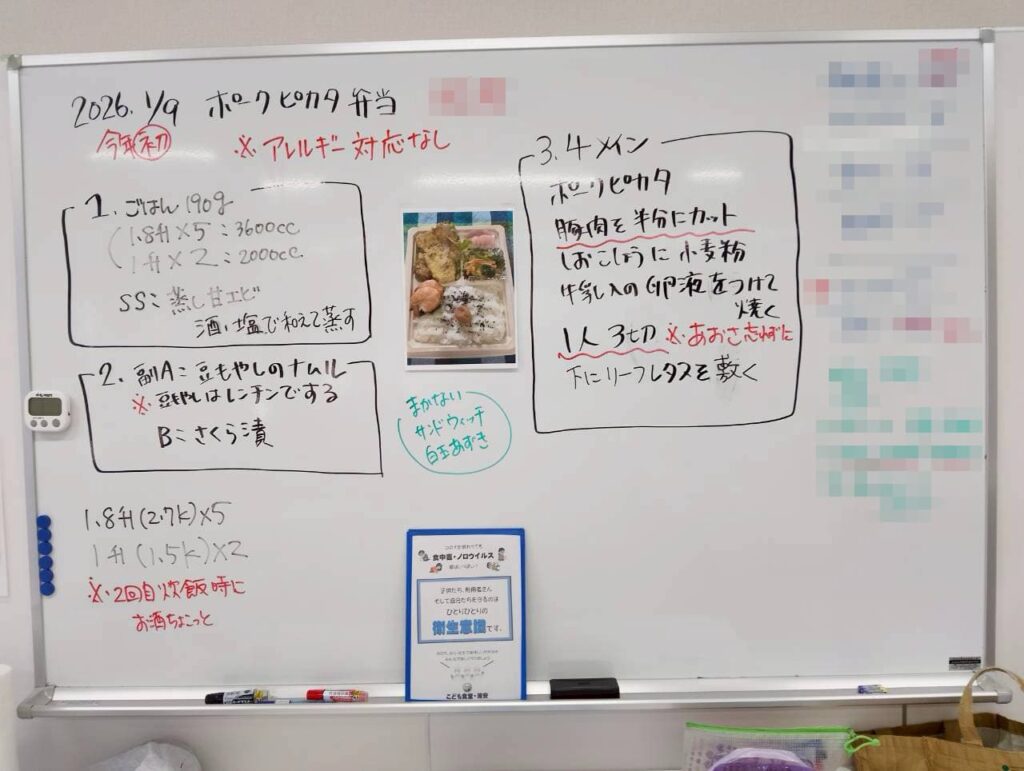 2026. 1/9 ポークピカタ弁当
今年初
※アレルギー対応なし
1. ごはん190g
1.8升×5:3600cc
1升×2:2000cc
SS:蒸し甘エビ
酒、塩で和えて蒸す
2. 副A:豆もやしのナムル
※豆もやしはレンチンでする
B:さくら漬
1.8升(2.7k)×5
1升(1.5k)×2
※2回目炊飯時に
お酒ちょこっと
まかない
サンドウィッチ
白玉あずき
3.4メイン
ポークピカタ
豚肉を半分にカット
しおこしょうに小麦粉
牛乳入の卵液をつけて
焼く
1人3切 ※あおさ忘れずに
下にリーフレタスを敷く
食中毒・ノロウイルス
子供たち、利用者さん
そして自分たちを守るのは
ひとりひとりの
衛生意識です。
こども食堂・浦安